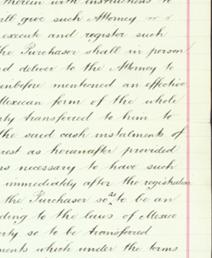 therein with instructions to
all give such Attorney
execute and register such
the Purchaser shall in person
nd deliver to the Attorney to
einbefore mentioned an effective
Mexican form of the whole
ly transferred to him to
the said cash instalments of
rest as hereinafter provided
rs necessary to have such
immediately after the registration
the Purchaser so as to be an
ding to the laws of Mexico
erty so to be transferred
ments which under the terms